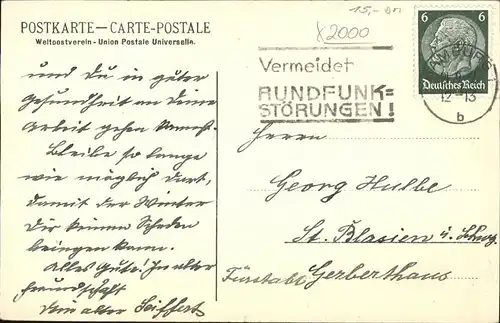 15,- DM
X2000
POSTKARTE—CARTE-POSTALE
Weltpostverein - Union Postale Universelle.
und Du in guter
Gesundheit an Deine
Arbeit gehen kannst.
Bleibe so lange
wie möglich dort,
damit der Winter
Dir keinen Schaden
bringen kann.
Alles Gute! In alter
Freundschaft
Dein alter Seiffert
Vermeidet
RUNDFUNK=
STÖRUNGEN!
6 6
Deutsches Reich
12-13
b
Herrn
Georg Hulbe
St. Blasien
Fürstabt Gerberthaus